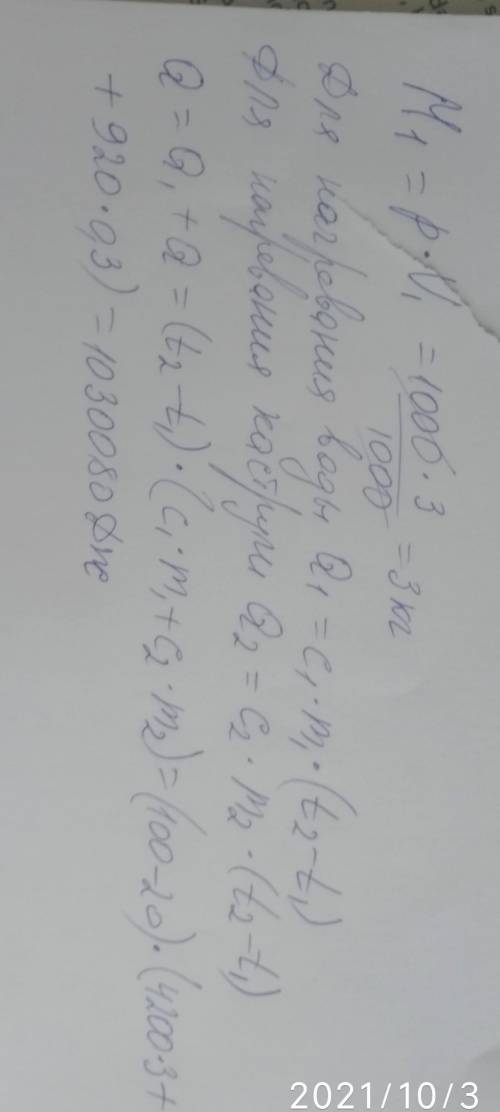 M₁ = ρ·V₁ = 1000·3 / 1000 = 3 кг
Для нагревания воды Q₁ = c₁·m₁·(t₂-t₁)
Для нагревания каструли Q₂ = c₂·m₂·(t₂-t₁)
Q = Q₁ + Q = (t₂-t₁)·(c₁·m₁+c₂·m₂)=(100-20)·(4200·3+
+920·0,3)=1030080Дж
2021/10/3